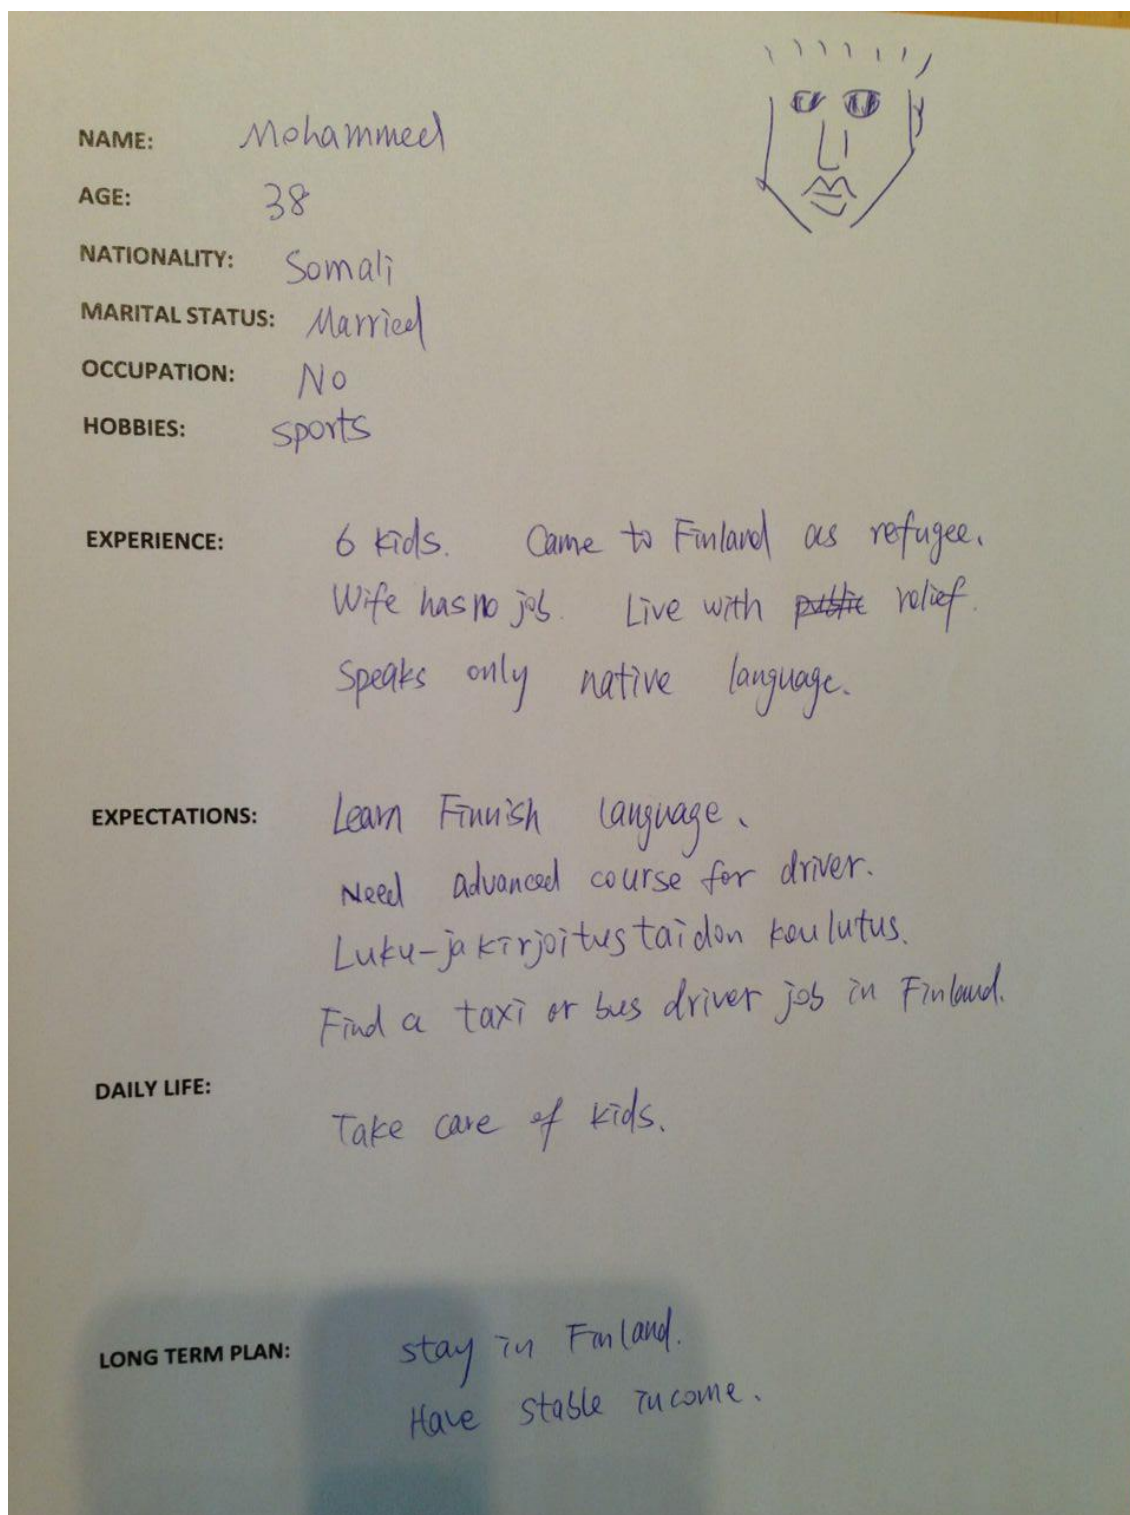 NAME: Mohammed
AGE: 38
NATIONALITY: Somali
MARITAL STATUS: Married
OCCUPATION: No
HOBBIES: sports
EXPERIENCE: 6 kids. Came to Finland as refugee.
Wife has no job. Live with public relief.
Speaks only native language.
EXPECTATIONS: Learn Finnish language.
Need advanced course for driver.
Luku-ja kirjoitustaidon koulutus.
Find a taxi or bus driver job in Finland.
DAILY LIFE:
Take care of kids.
LONG TERM PLAN: stay in Finland.
Have stable income.